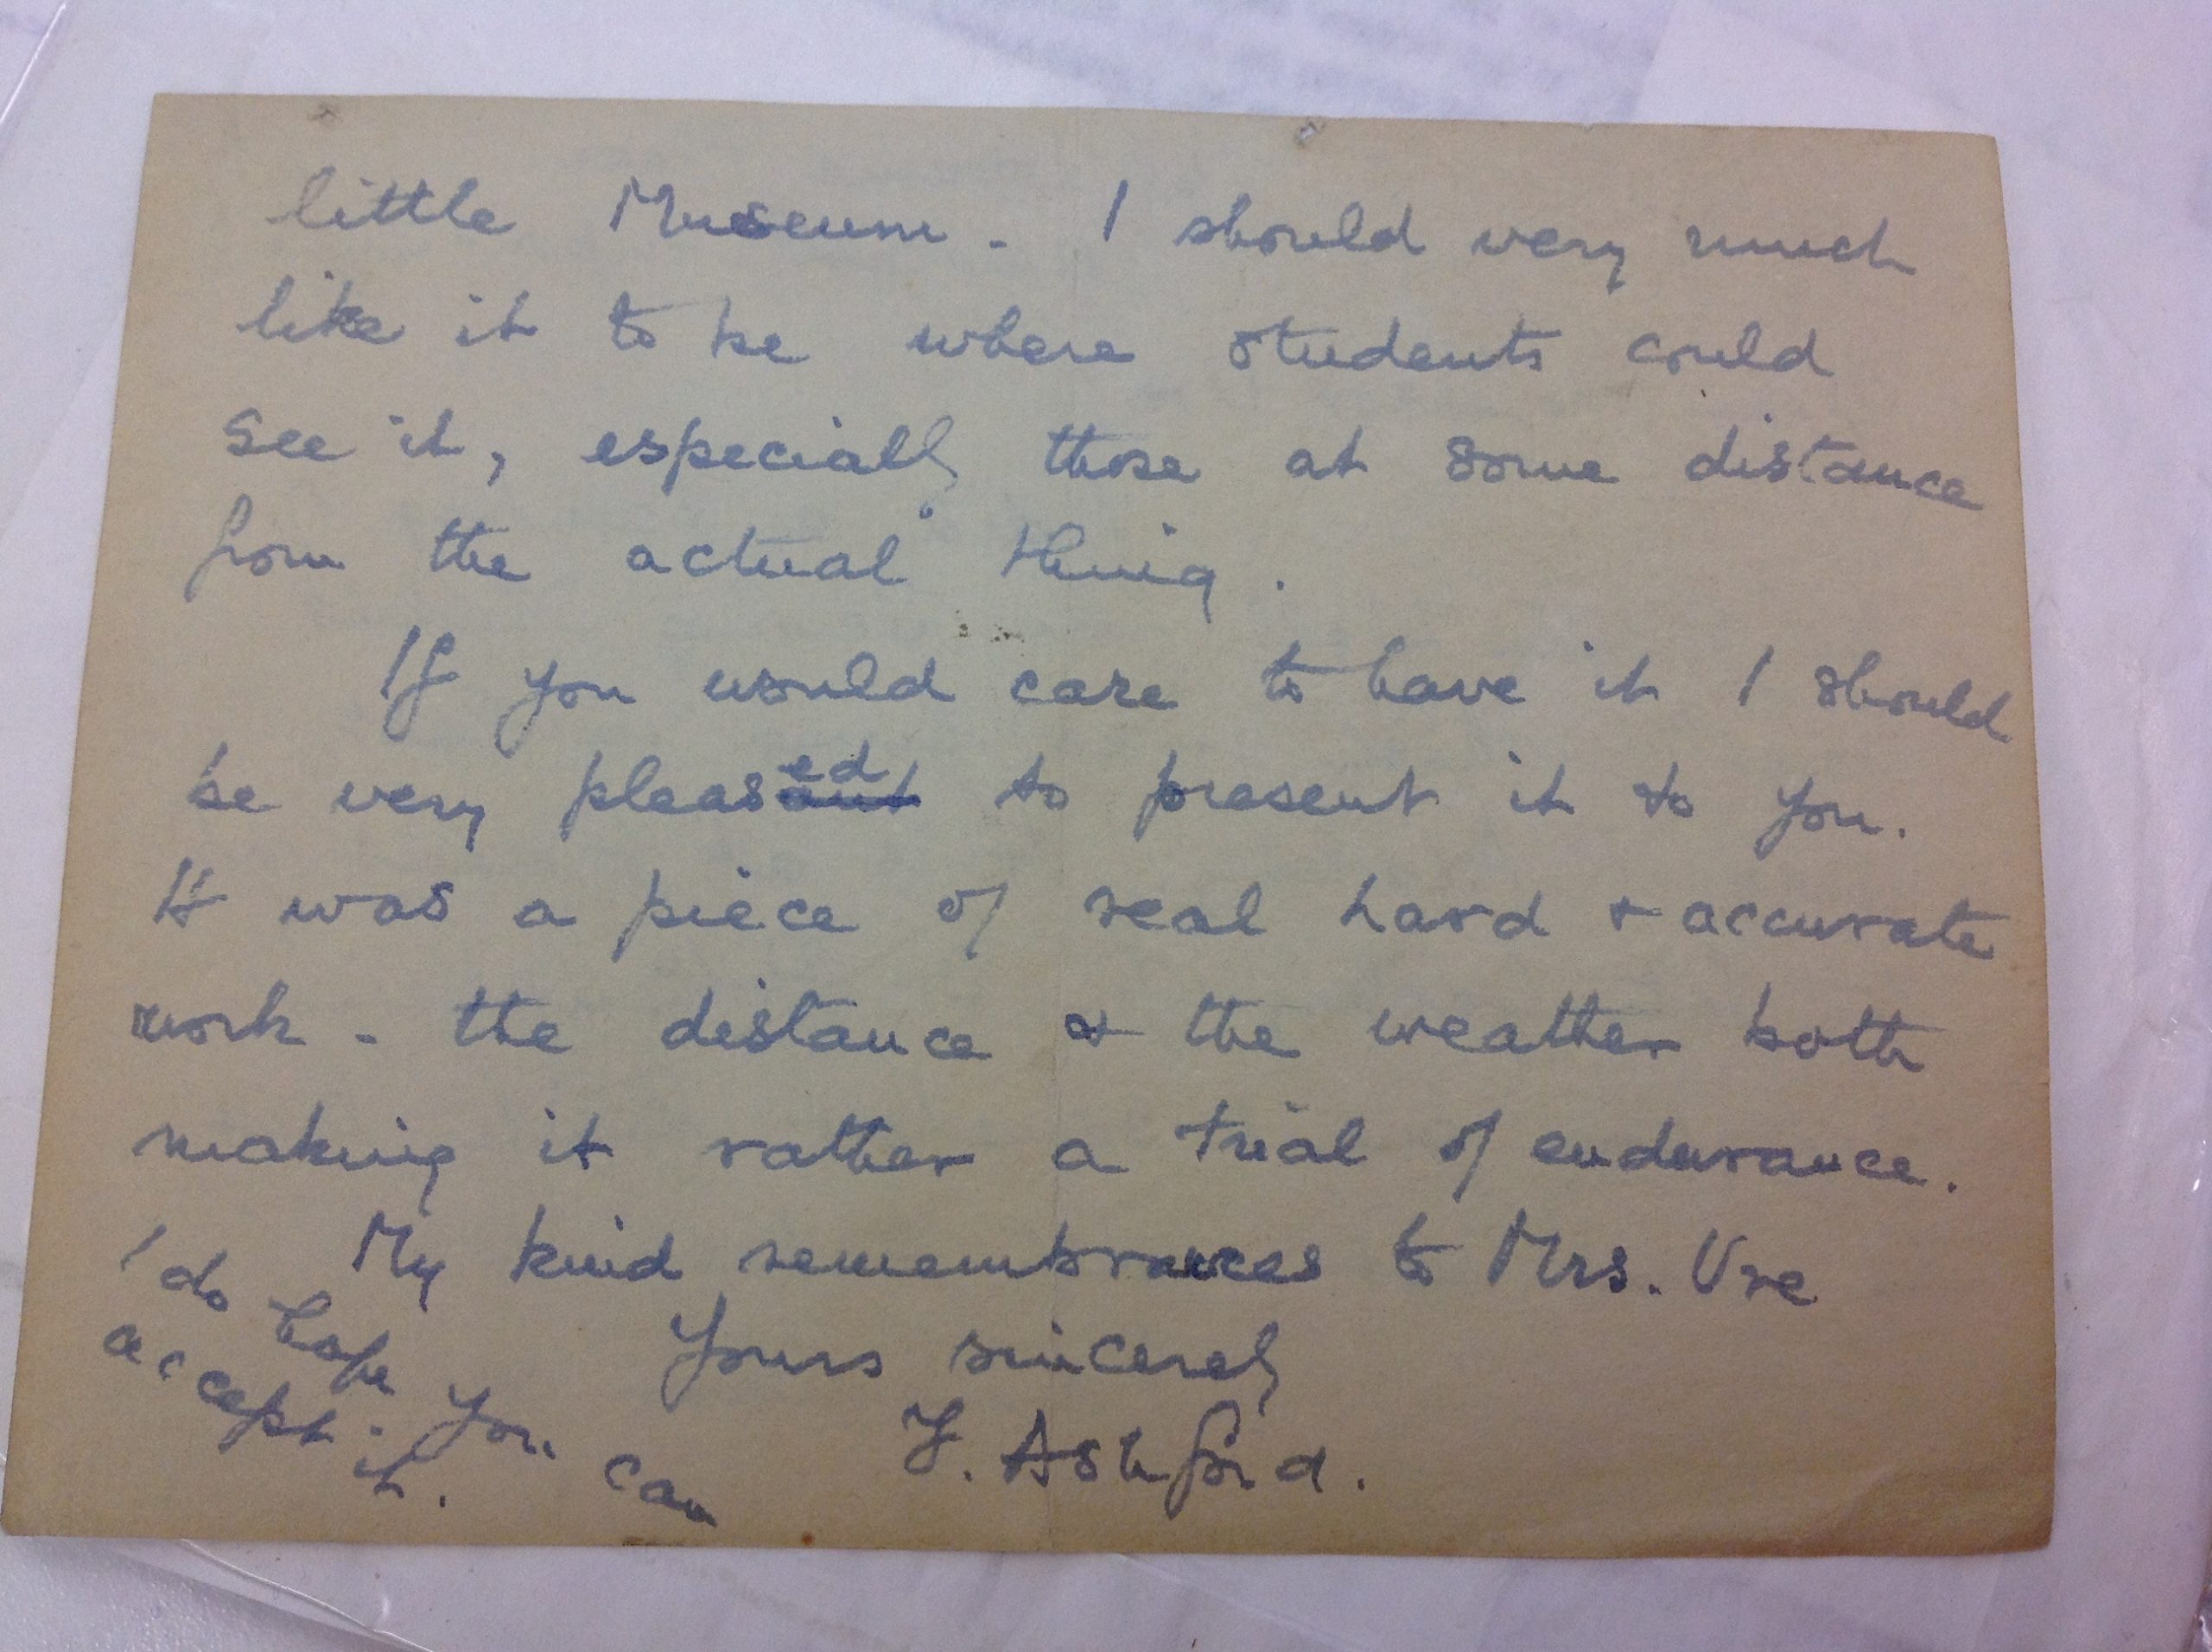 little Museum - I should very much
like it to be where students could
see it, especially those at some distance
from the actual thing.
If you would care to have it I should
be very pleased to present it to you.
It was a piece of real hard & accurate
work - the distance & the weather both
making it rather a trial of endurance.
My kind remembrances to Mrs. Ure
Yours sincerely
F. Ashford.
I do hope you can
accept it.